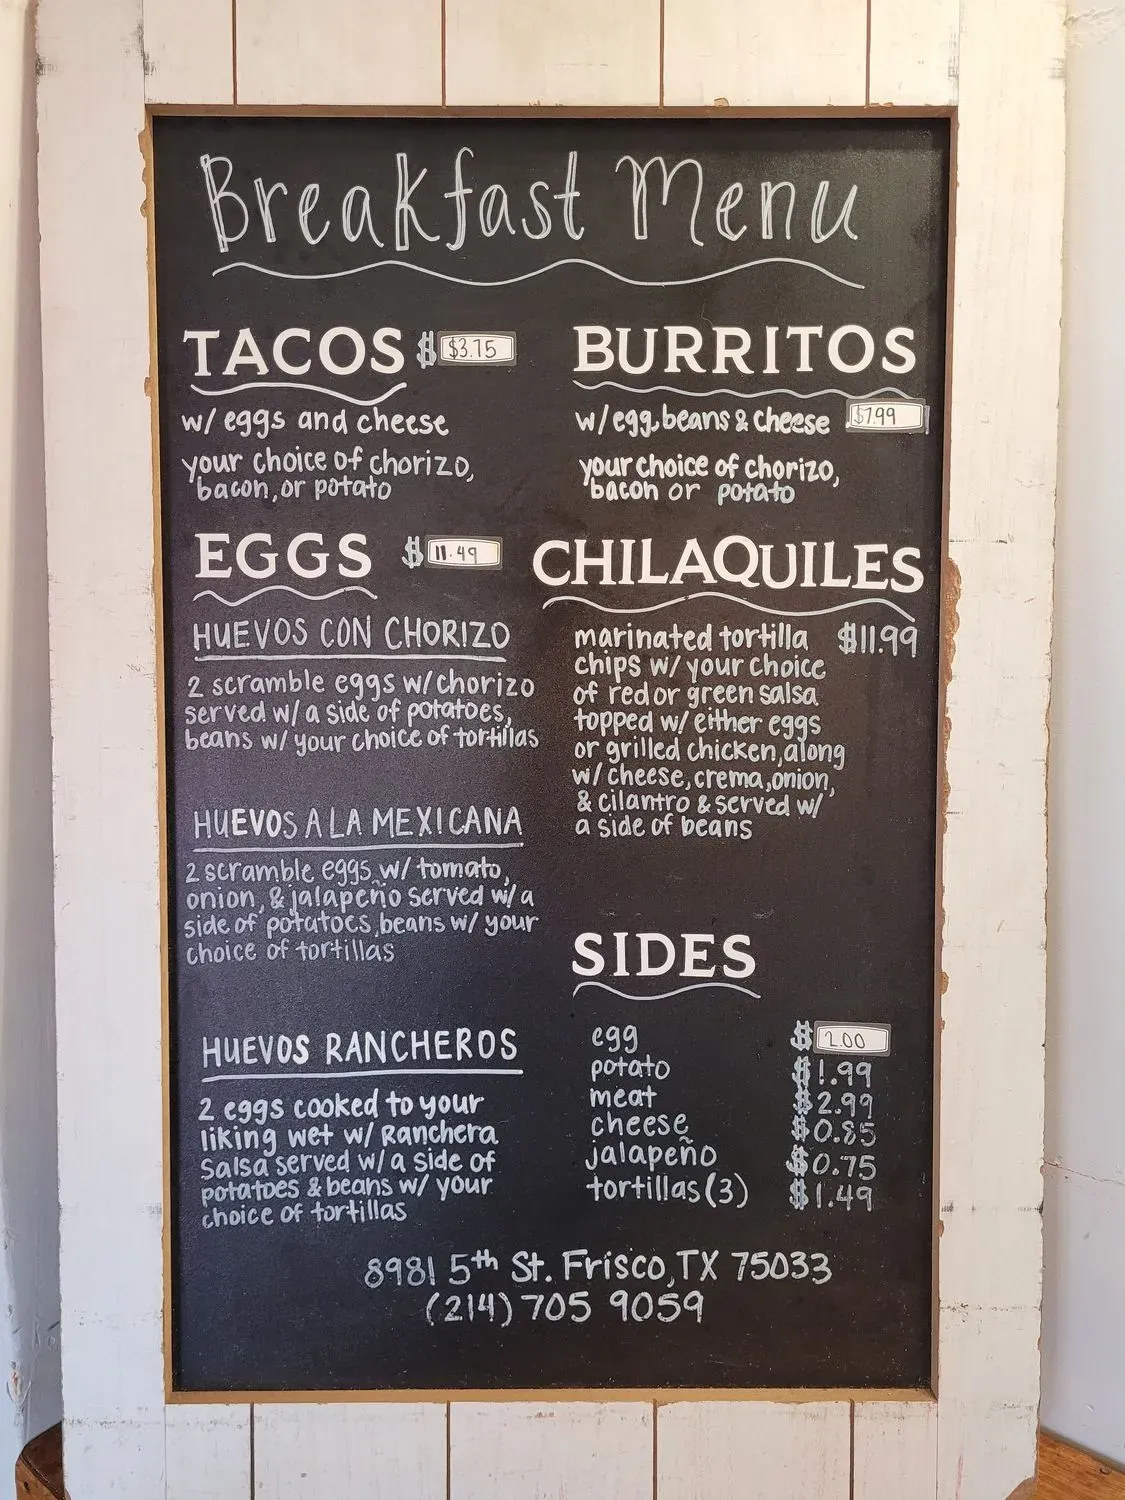 Breakfast Menu
TACOS $ $3.75
w/ eggs and cheese
your choice of chorizo,
bacon, or potato
BURRITOS
w/egg, beans & cheese $7.99
your choice of chorizo,
bacon or potato
EGGS $ 11.49
HUEVOS CON CHORIZO
2 scramble eggs w/chorizo
served w/ a side of potatoes,
beans w/ your choice of tortillas
HUEVOS A LA MEXICANA
2 scramble eggs w/ tomato,
onion, & jalapeño served w/ a
side of potatoes, beans w/ your
choice of tortillas
HUEVOS RANCHEROS
2 eggs cooked to your
liking wet w/ Ranchera
Salsa served w/ a side of
potatoes & beans w/ your
choice of tortillas
CHILAQUILES
marinated tortilla $11.99
chips w/ your choice
of red or green salsa
topped w/ either eggs
or grilled chicken, along
w/ cheese, crema, onion,
& cilantro & served w/
a side of beans
SIDES
egg $ 2.00
potato $1.99
meat $2.99
cheese $0.85
jalapeño $0.75
tortillas (3) $1.49
8981 5th St. Frisco, TX 75033
(214) 705 9059